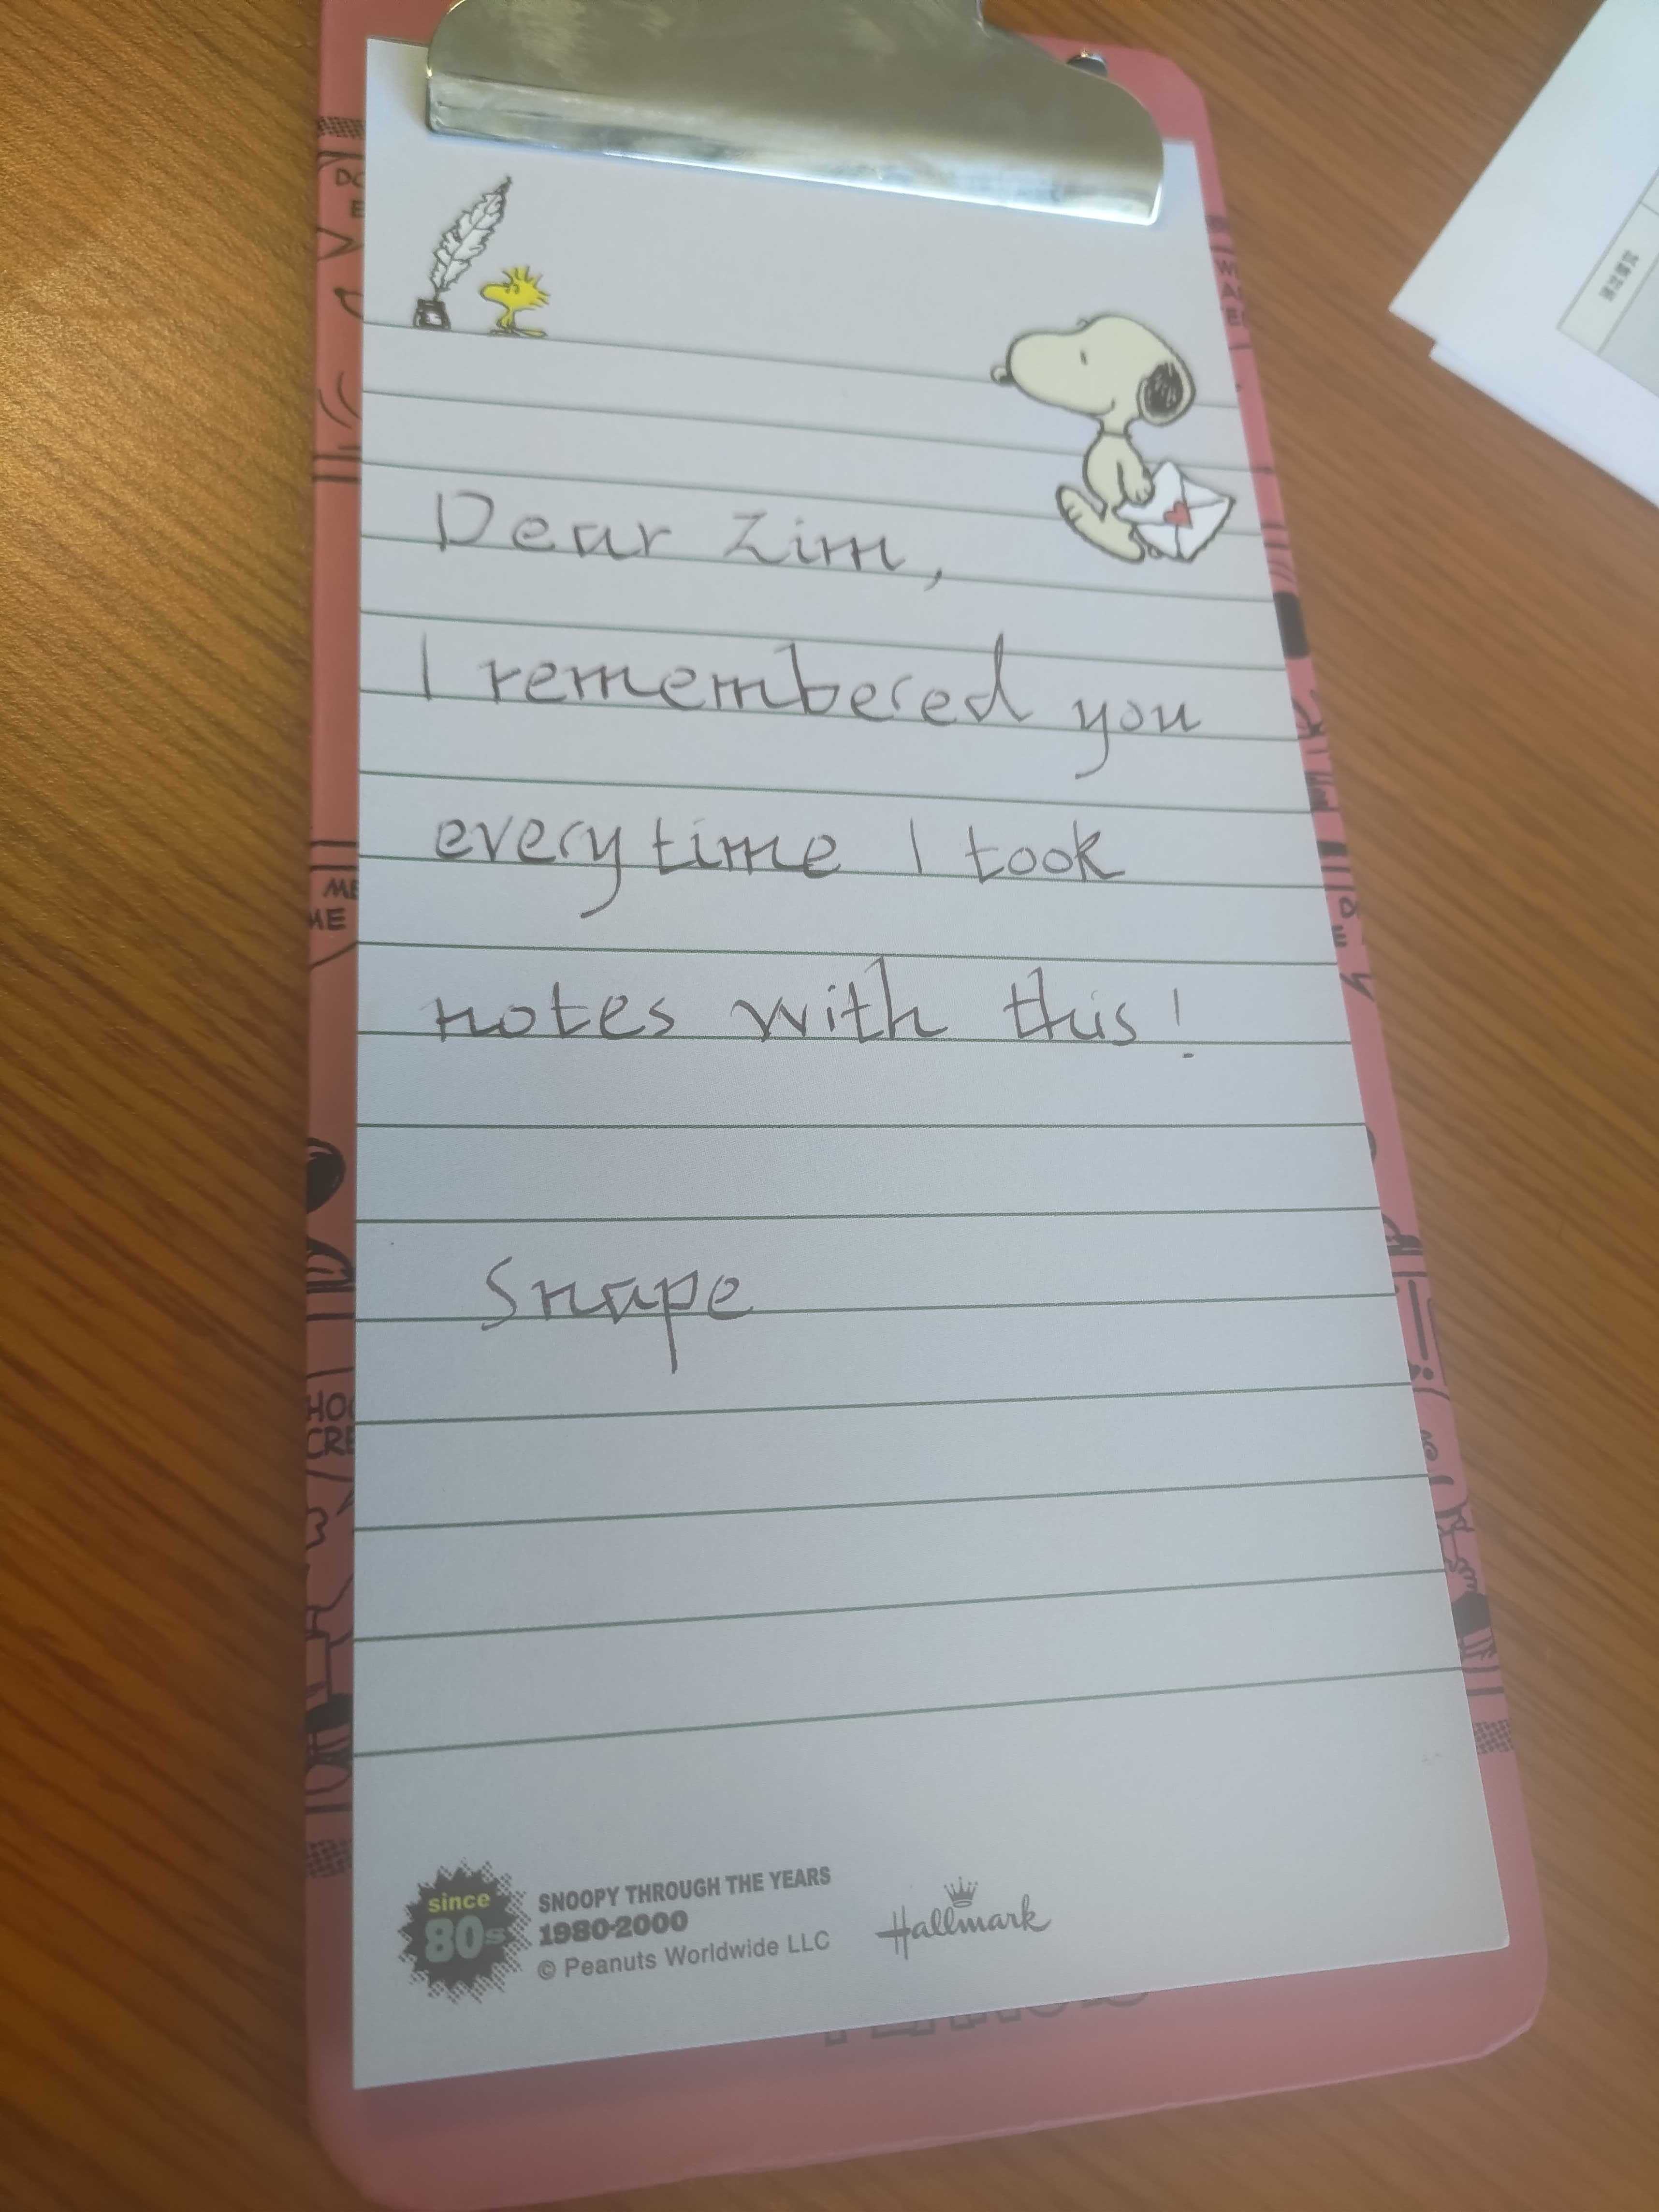 Dear Zim,
I remembered you
everytime I took
notes with this!
Snape
since
80s
SNOOPY THROUGH THE YEARS
1980-2000
© Peanuts Worldwide LLC
Hallmark
ME
ME